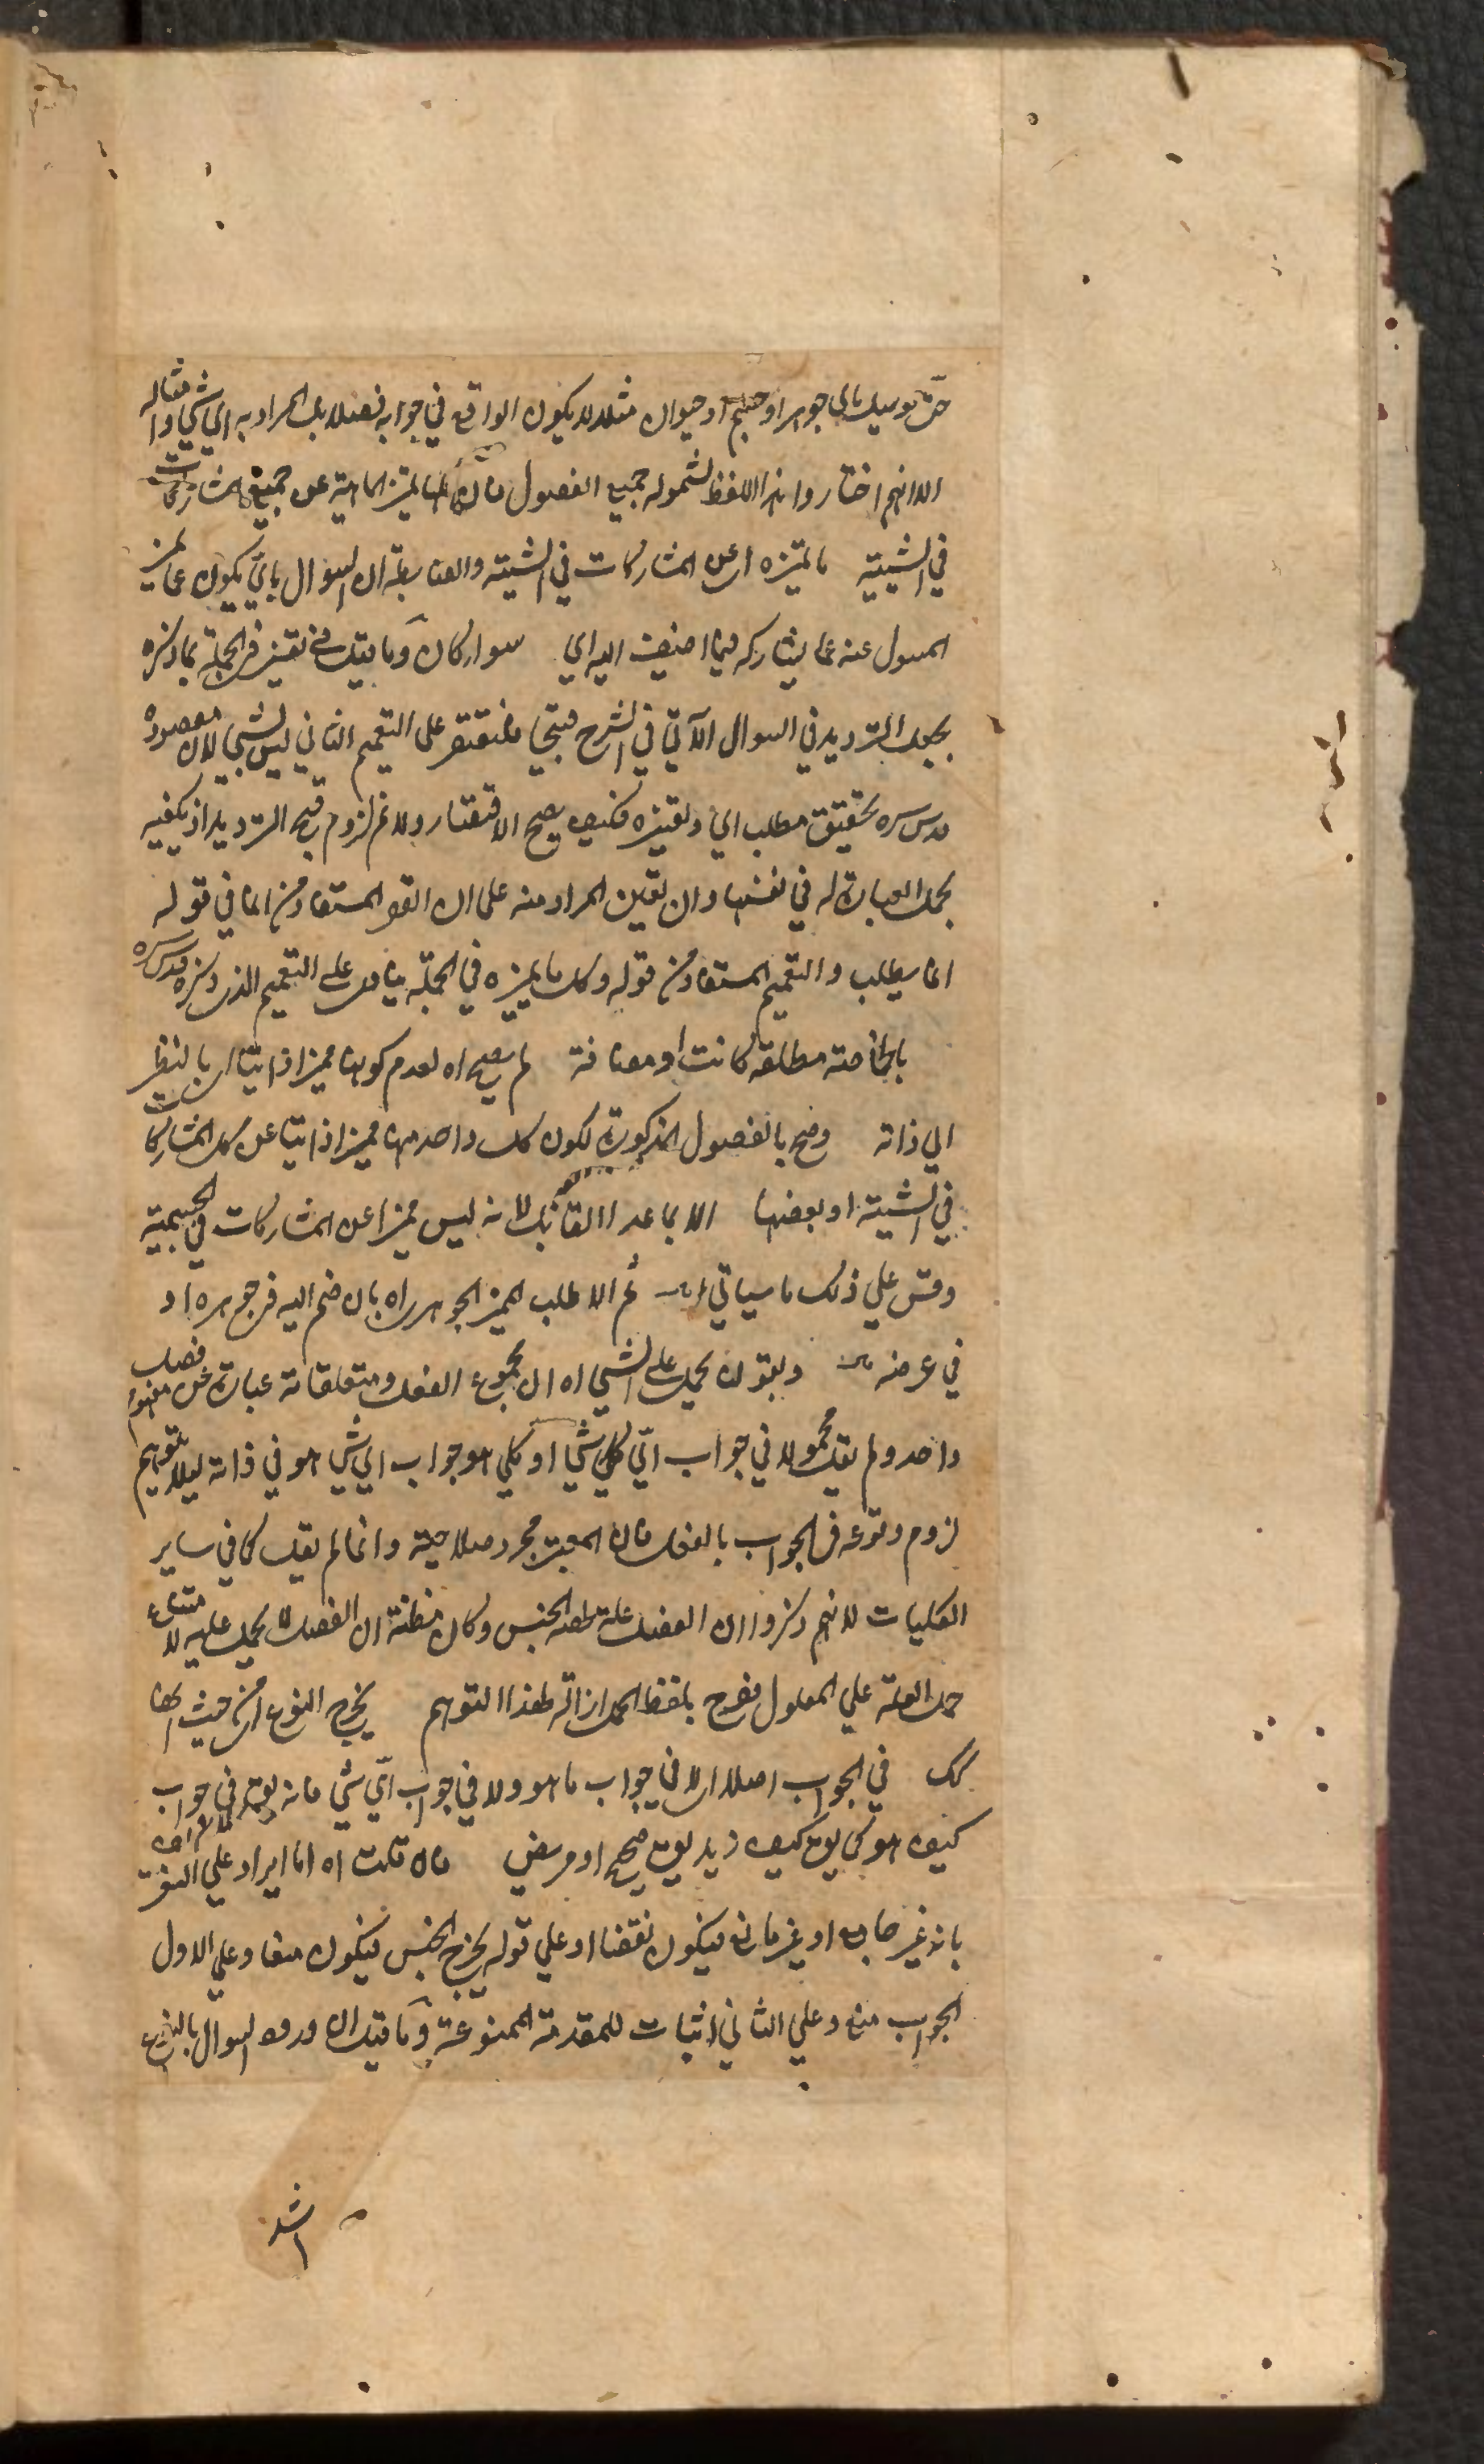 حتى لو سيل باي جوهر او جسم او حيوان مثلا لا يكون الواقع في جوابه فصلا بل المراد به اي شي وامثاله
الا انهم اختاروا هذا اللفظ لشموله جميع الفصول فان كلها يميز الماهية عن جميع المشاركات
في الشيئية ما تميزه اه عن المشاركات في الشيئية والضابطة ان السوال باي يكون عما يميز
المسول عنه عما يشاركه فيما اضيف اليه اي سواء كان وما يقال في الجملة بما ذكره
يجعل الترديد في السوال الآتي في الشرح قبيحا فليقتصر على التعميم الثاني ليس بشي لان مقصوده
قدس سره تحقيق مطلب اي وتعيينه فكيف يصح الاقتصار ولا نم لزوم قبح الترديد اذ يكفيه
تحمل العبارة له في نفسها وان تعين المراد منه على ان القصر المستفاد من انما في قوله
انما يطلب والتعميم المستفاد من قوله وكل ما يميزه في الجملة على التعميم الذي ذكره قدس سره
بالخاصة مطلقة كانت او مضافة لم يصح اه لعدم كونها مميزا ذاتيا اي بالنظر
الى ذاته وصح بالفصول المذكورة لكون كل واحد منها مميزا ذاتيا عن كل المشاركات
في الشيئية او بعضها الا بما عدا القابل لانه ليس مميزا عن المشاركات في الجسمية
وقس علي ذلك ما سياتي ثم الا طلب المميز الجوهري اه بان ضم اليه في جوهره او
في عرضه وبقولنا يحمل على الشي اه ان مجموع الفعل ومتعلقاته عبارة عن مفهوم فصل
واحد ولم يقل محمولا في جواب اي شي او كلي هو جواب اي شي هو في ذاته ليلا يتوهم
لزوم وقوعه في الجواب بالفعل فان المعتبر مجرد صلاحيته وانما لم يقل كما في ساير
الكليات لانهم ذكروا ان الفصل علة لحصة الجنس وكان مظنة ان الفصل لا يحمل عليه لامتناع
حمل العلة علي المعلول فصرح بلفظ الحمل ازالة لهذا التوهم يخرج النوع اه من حيث انها
كك في الجواب اصلا اي لا في جواب ما هو ولا في جواب اي شي فانه يقع في جواب
كيف هو كما يق كيف زيد يق صحيح او مريض فان قلت اه اما ايراد علي التعريف
بانه غير جامع او غير مانع فيكون نقضا او علي قوله يخرج الجنس فيكون منعا وعلي الاول
الجواب منع وعلي الثاني اثبات للمقدمة الممنوعة وما قيل ان ورود السوال بالنوع